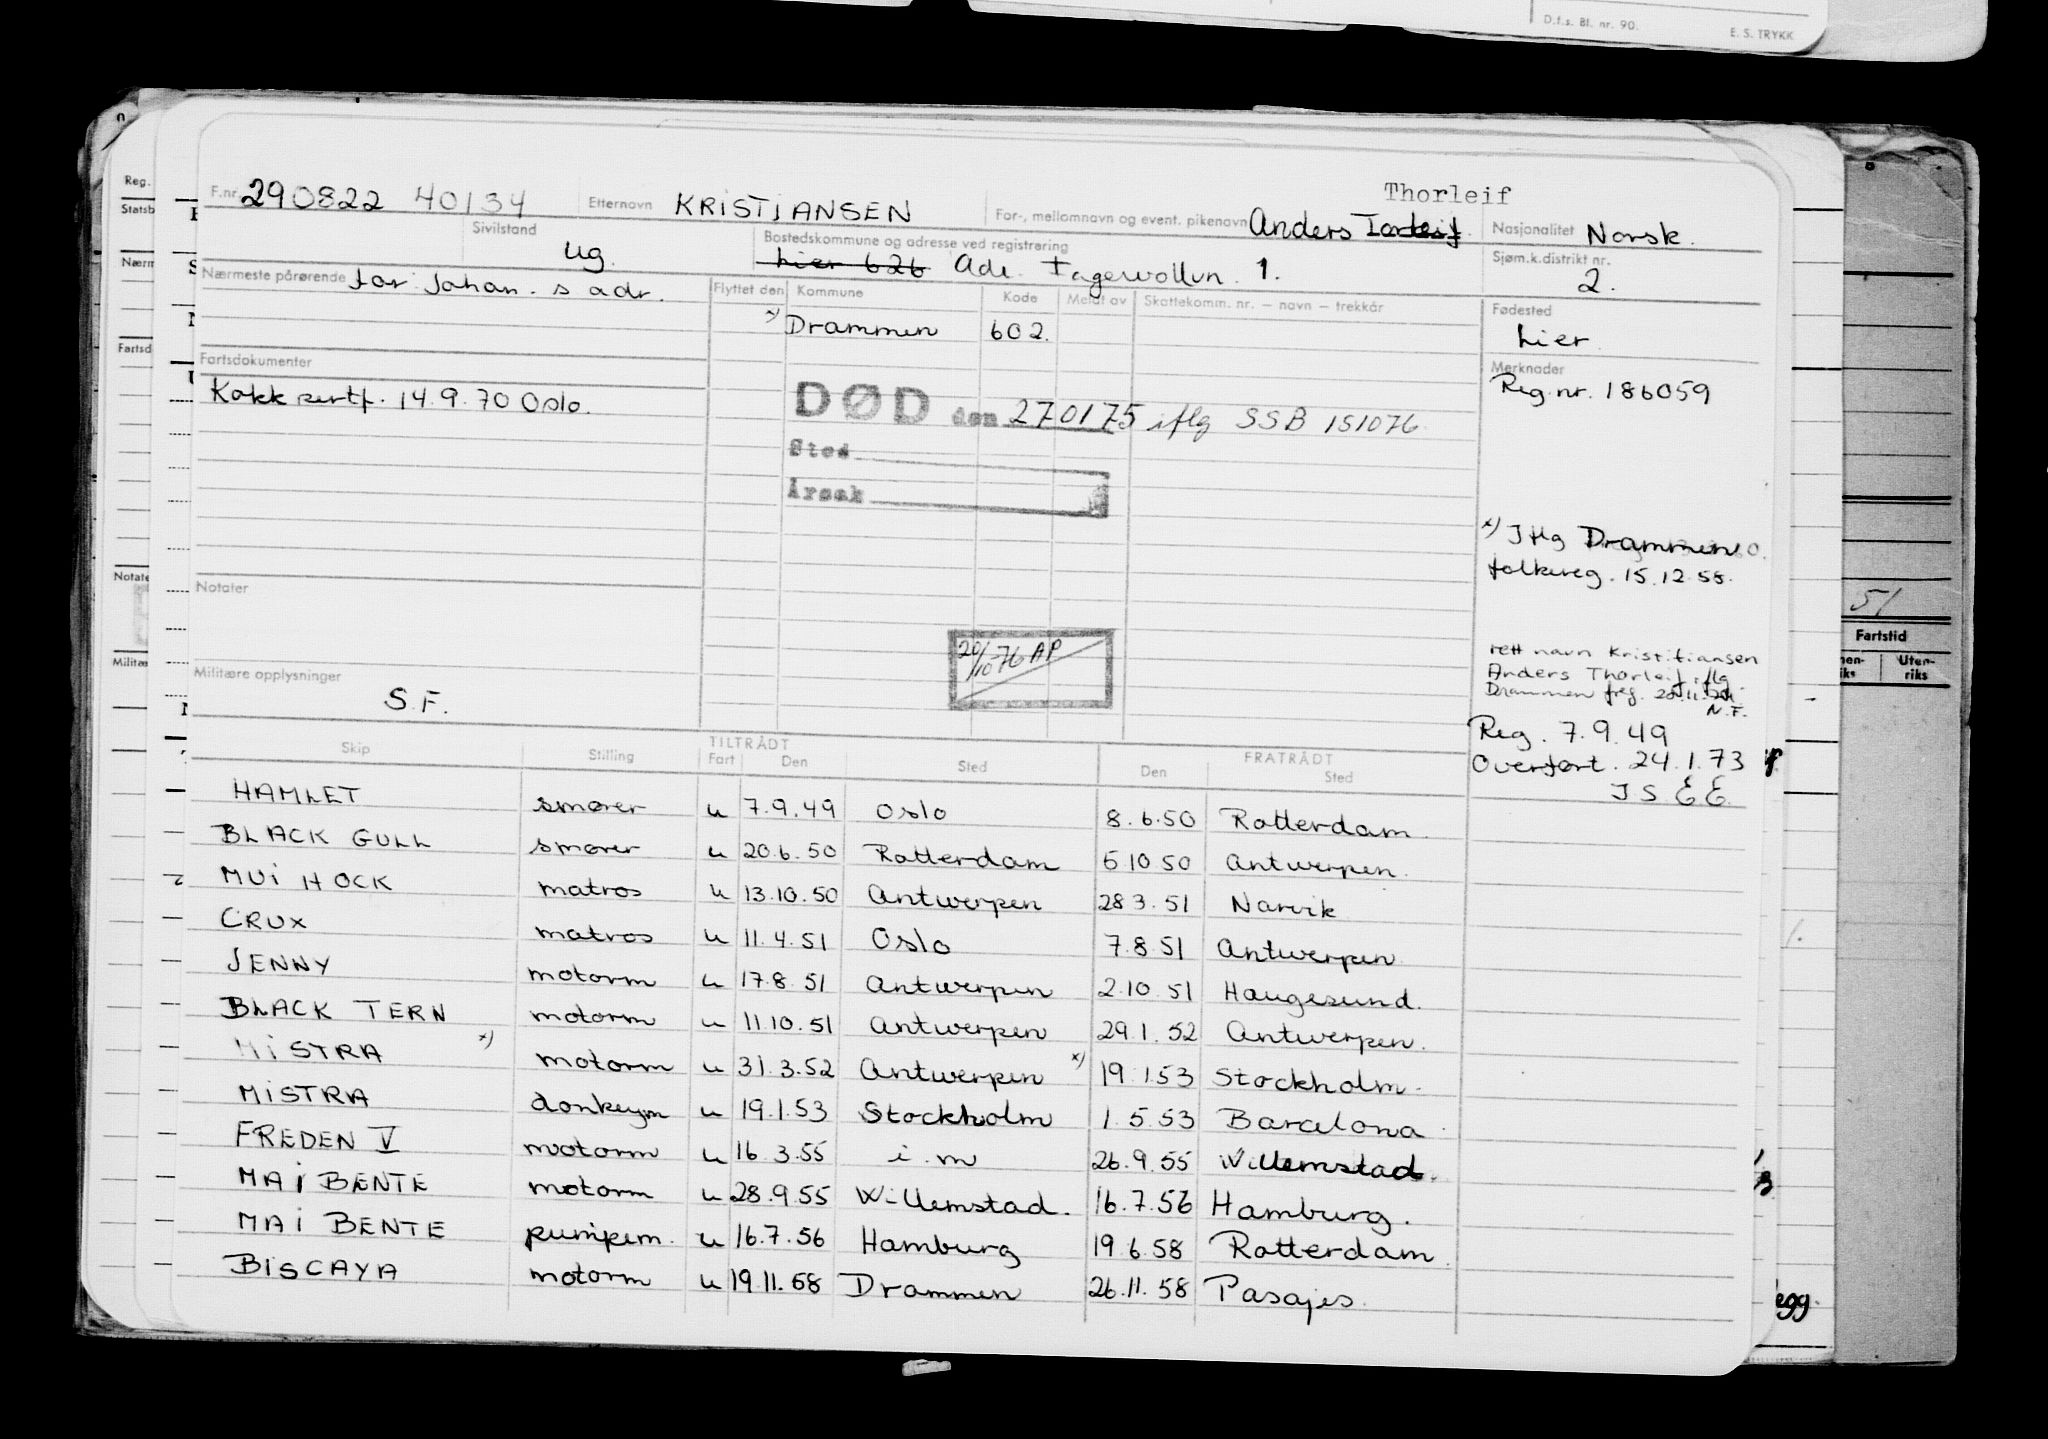 D.f.s. Bl. nr. 90. E. S. TRYKK
Thorleif
F.nr. 290822 40134 Etternavn KRISTIANSEN For-, mellomnavn og event. pikenavn Anders Torleif Nasjonalitet Norsk.
Sivilstand ug. Bostedskommune og adresse ved registrering Sjøm.k.distrikt nr. 2.
Lier 626 Adr. 1.
Nærmeste pårørende far Johan. s adr. Flyttet den Kommune Kode Meldt av Skattekomm. nr. — navn — trekkår Fødested
x) Drammen 602. Lier.
Fartsdokumenter Merknader
Kokk sertf. 14.9.70 Oslo. Reg.nr. 186059
DØD den 270175 iflg SSB 151076
Sted
Årsak
x) Iflg Drammen
folkereg. 15.12.58.
Notater
20/10-76 AP
rett navn Kristiansen
Anders Thorleif iflg
Drammen freg.
N.F.
Militære opplysninger
S.F.
Reg. 7.9.49
Overført. 24.1.73
J S E E
Skip Stilling TILTRÅDT Fart Den Sted FRATRÅDT Den Sted
HAMLET smører u 7.9.49 Oslo 8.6.50 Rotterdam.
BLACK GULL smører u 20.6.50 Rotterdam 5 10 50 Antwerpen.
MUI HOCK matros u 13.10.50 Antwerpen 28 3.51 Narvik
CRUX matros u 11.4.51 Oslo 7.8.51 Antwerpen
JENNY motorm u 17.8.51 Antwerpen 2.10.51 Haugesund.
BLACK TERN motorm u 11.10.51 Antwerpen 29.1.52 Antwerpen.
MISTRA x) motorm u 31.3.52 Antwerpen x) 19.1.53 Stockholm.
MISTRA donkeym u 19.1.53 Stockholm 1.5.53 Barcelona
FREDEN V motorm u 16.3.55 i.m 26.9.55 Willemstad.
MAI BENTE motorm u 28.9.55 Willemstad. 16.7.56 Hamburg.
MAI BENTE pumpem. u 16.7.56 Hamburg 19.6.58 Rotterdam.
BISCAYA motorm u 19.11.58 Drammen 26.11.58 Pasajes.
Reg.
Statsb
Nærm
Fartsd
Notate
Militæ
51
Fartstid
Uten-
riks
egg.